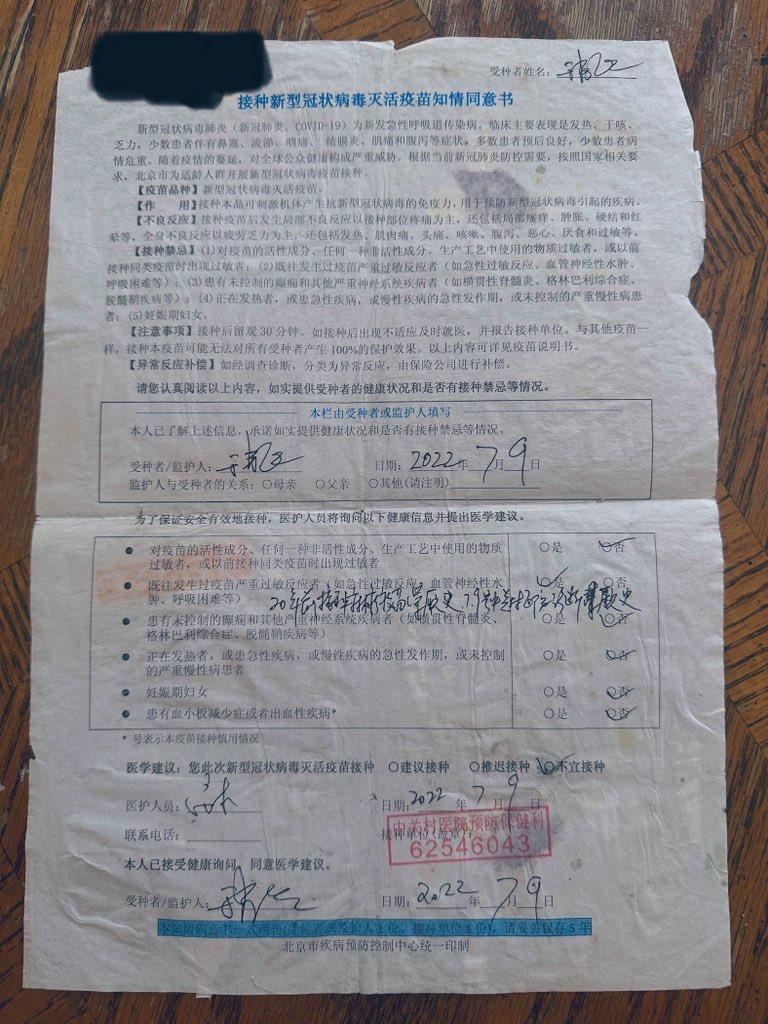 受种者姓名：
接种新型冠状病毒灭活疫苗知情同意书
新型冠状病毒肺炎（新冠肺炎，COVID-19）为新发急性呼吸道传染病。临床主要表现是发热、干咳、
乏力，少数患者伴有鼻塞、流涕、咽痛、结膜炎、肌痛和腹泻等症状。多数患者预后良好，少数患者病
情危重。随着疫情的蔓延，对全球公众健康构成严重威胁。根据当前新冠肺炎防控需要，按照国家相关要
求，北京市为适龄人群开展新型冠状病毒疫苗接种。
【疫苗品种】新型冠状病毒灭活疫苗。
【作　　用】接种本品可刺激机体产生抗新型冠状病毒的免疫力，用于预防新型冠状病毒引起的疾病。
【不良反应】接种疫苗后发生局部不良反应以接种部位疼痛为主，还包括局部瘙痒、肿胀、硬结和红
晕等，全身不良反应以疲劳乏力为主，还包括发热、肌肉痛、头痛、咳嗽、腹泻、恶心、厌食和过敏等。
【接种禁忌】(1)对疫苗的活性成分、任何一种非活性成分、生产工艺中使用的物质过敏者，或以前
接种同类疫苗时出现过敏者；(2)既往发生过疫苗严重过敏反应者（如急性过敏反应、血管神经性水肿、
呼吸困难等）；(3)患有未控制的癫痫和其他严重神经系统疾病者（如横贯性脊髓炎、格林巴利综合症、
脱髓鞘疾病等）；(4)正在发热者，或患急性疾病，或慢性疾病的急性发作期，或未控制的严重慢性病患
者；(5)妊娠期妇女。
【注意事项】接种后留观30分钟。如接种后出现不适应及时就医，并报告接种单位。与其他疫苗一
样，接种本疫苗可能无法对所有受种者产生100%的保护效果。以上内容可详见疫苗说明书。
【异常反应补偿】如经调查诊断，分类为异常反应，由保险公司进行补偿。
请您认真阅读以上内容，如实提供受种者的健康状况和是否有接种禁忌等情况。
本栏由受种者或监护人填写
本人已了解上述信息，承诺如实提供健康状况和是否有接种禁忌等情况。
受种者/监护人： 日期：2022年7月9日
监护人与受种者的关系：○母亲　○父亲　○其他(请注明)
为了保证安全有效地接种，医护人员将询问以下健康信息并提出医学建议。
● 对疫苗的活性成分、任何一种非活性成分、生产工艺中使用的物质 ○是 ○否
过敏者，或以前接种同类疫苗时出现过敏者
● 既往发生过疫苗严重过敏反应者（如急性过敏反应、血管神经性水 ○是 ○否
肿、呼吸困难等）
● 患有未控制的癫痫和其他严重神经系统疾病者（如横贯性脊髓炎、 ○是 ○否
格林巴利综合症、脱髓鞘疾病等）
● 正在发热者，或患急性疾病，或慢性疾病的急性发作期，或未控制 ○是 ○否
的严重慢性病患者
● 妊娠期妇女 ○是 ○否
● 患有血小板减少症或者出血性疾病* ○是 ○否
*号表示本疫苗接种慎用情况
医学建议：您此次新型冠状病毒灭活疫苗接种　○建议接种　○推迟接种　○不宜接种
医护人员： 日期：2022年7月9日
联系电话： 接种单位(盖章)：
中关村医院预防保健科
62546043
本人已接受健康询问，同意医学建议。
受种者/监护人： 日期：2022年7月9日
本知情同意书一式两份(受种者或监护人1份，接种单位1份)，请妥善保存5年
北京市疾病预防控制中心统一印制